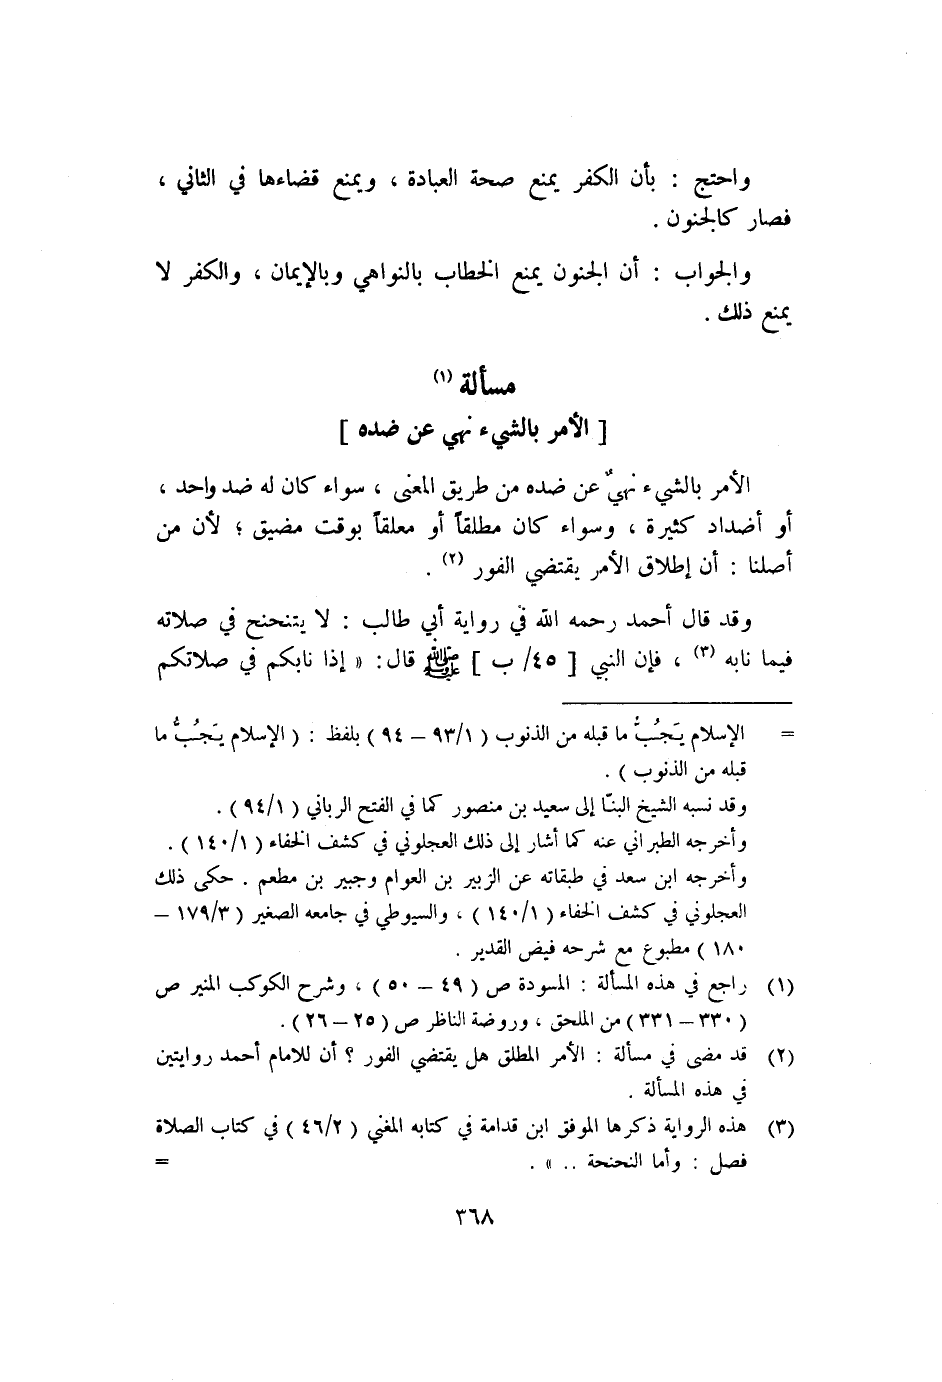 واحتج : بأن الكفر يمنع صحة العبادة ، ويمنع قضاءها في الثاني ،
فصار كالجنون .
والجواب : أن الجنون يمنع الخطاب بالنواهي وبالإيمان ، والكفر لا
يمنع ذلك .
مسألة (١)
[ الأمر بالشيء نهي عن ضده ]
الأمر بالشيء نهيٌ عن ضده من طريق المعنى ، سواء كان له ضد واحد ،
أو أضداد كثيرة ، وسواء كان مطلقاً أو معلقاً بوقت مضيق ؛ لأن من
أصلنا : أن إطلاق الأمر يقتضي الفور (٢) .
وقد قال أحمد رحمه الله في رواية أبي طالب : لا يتنحنح في صلاته
فيما نابه (٣) ، فإن النبي [ ٤٥/ ب ] ﷺ قال: « إذا نابكم في صلاتكم
= الإسلام يَجُبُّ ما قبله من الذنوب ( ٩٣/١ – ٩٤ ) بلفظ : ( الإسلام يَجُبُّ ما
قبله من الذنوب ) .
وقد نسبه الشيخ البنّا إلى سعيد بن منصور كما في الفتح الرباني ( ٩٤/١ ) .
وأخرجه الطبراني عنه كما أشار إلى ذلك العجلوني في كشف الخفاء ( ١٤٠/١ ) .
وأخرجه ابن سعد في طبقاته عن الزبير بن العوام وجبير بن مطعم . حكى ذلك
العجلوني في كشف الخفاء ( ١٤٠/١ ) ، والسيوطي في جامعه الصغير ( ١٧٩/٣ –
١٨٠ ) مطبوع مع شرحه فيض القدير .
(١) راجع في هذه المسألة : المسودة ص ( ٤٩ – ٥٠ ) ، وشرح الكوكب المنير ص
( ٣٣٠ – ٣٣١ ) من الملحق ، وروضة الناظر ص ( ٢٥ – ٢٦ ) .
(٢) قد مضى في مسألة : الأمر المطلق هل يقتضي الفور ؟ أن للامام أحمد روايتين
في هذه المسألة .
(٣) هذه الرواية ذكرها الموفق ابن قدامة في كتابه المغني ( ٤٦/٢ ) في كتاب الصلاة
فصل : وأما النحنحة .. » . =
٣٦٨